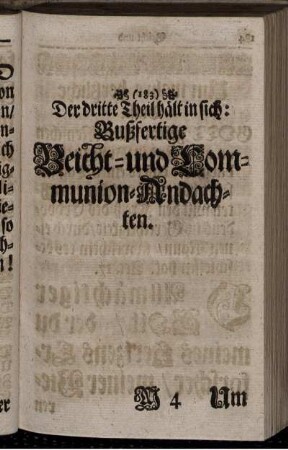 (183)
Der dritte Theil hält in sich:
Bußfertige
Beicht=und Com-
munion-Andach-
ten.
M 4 Um